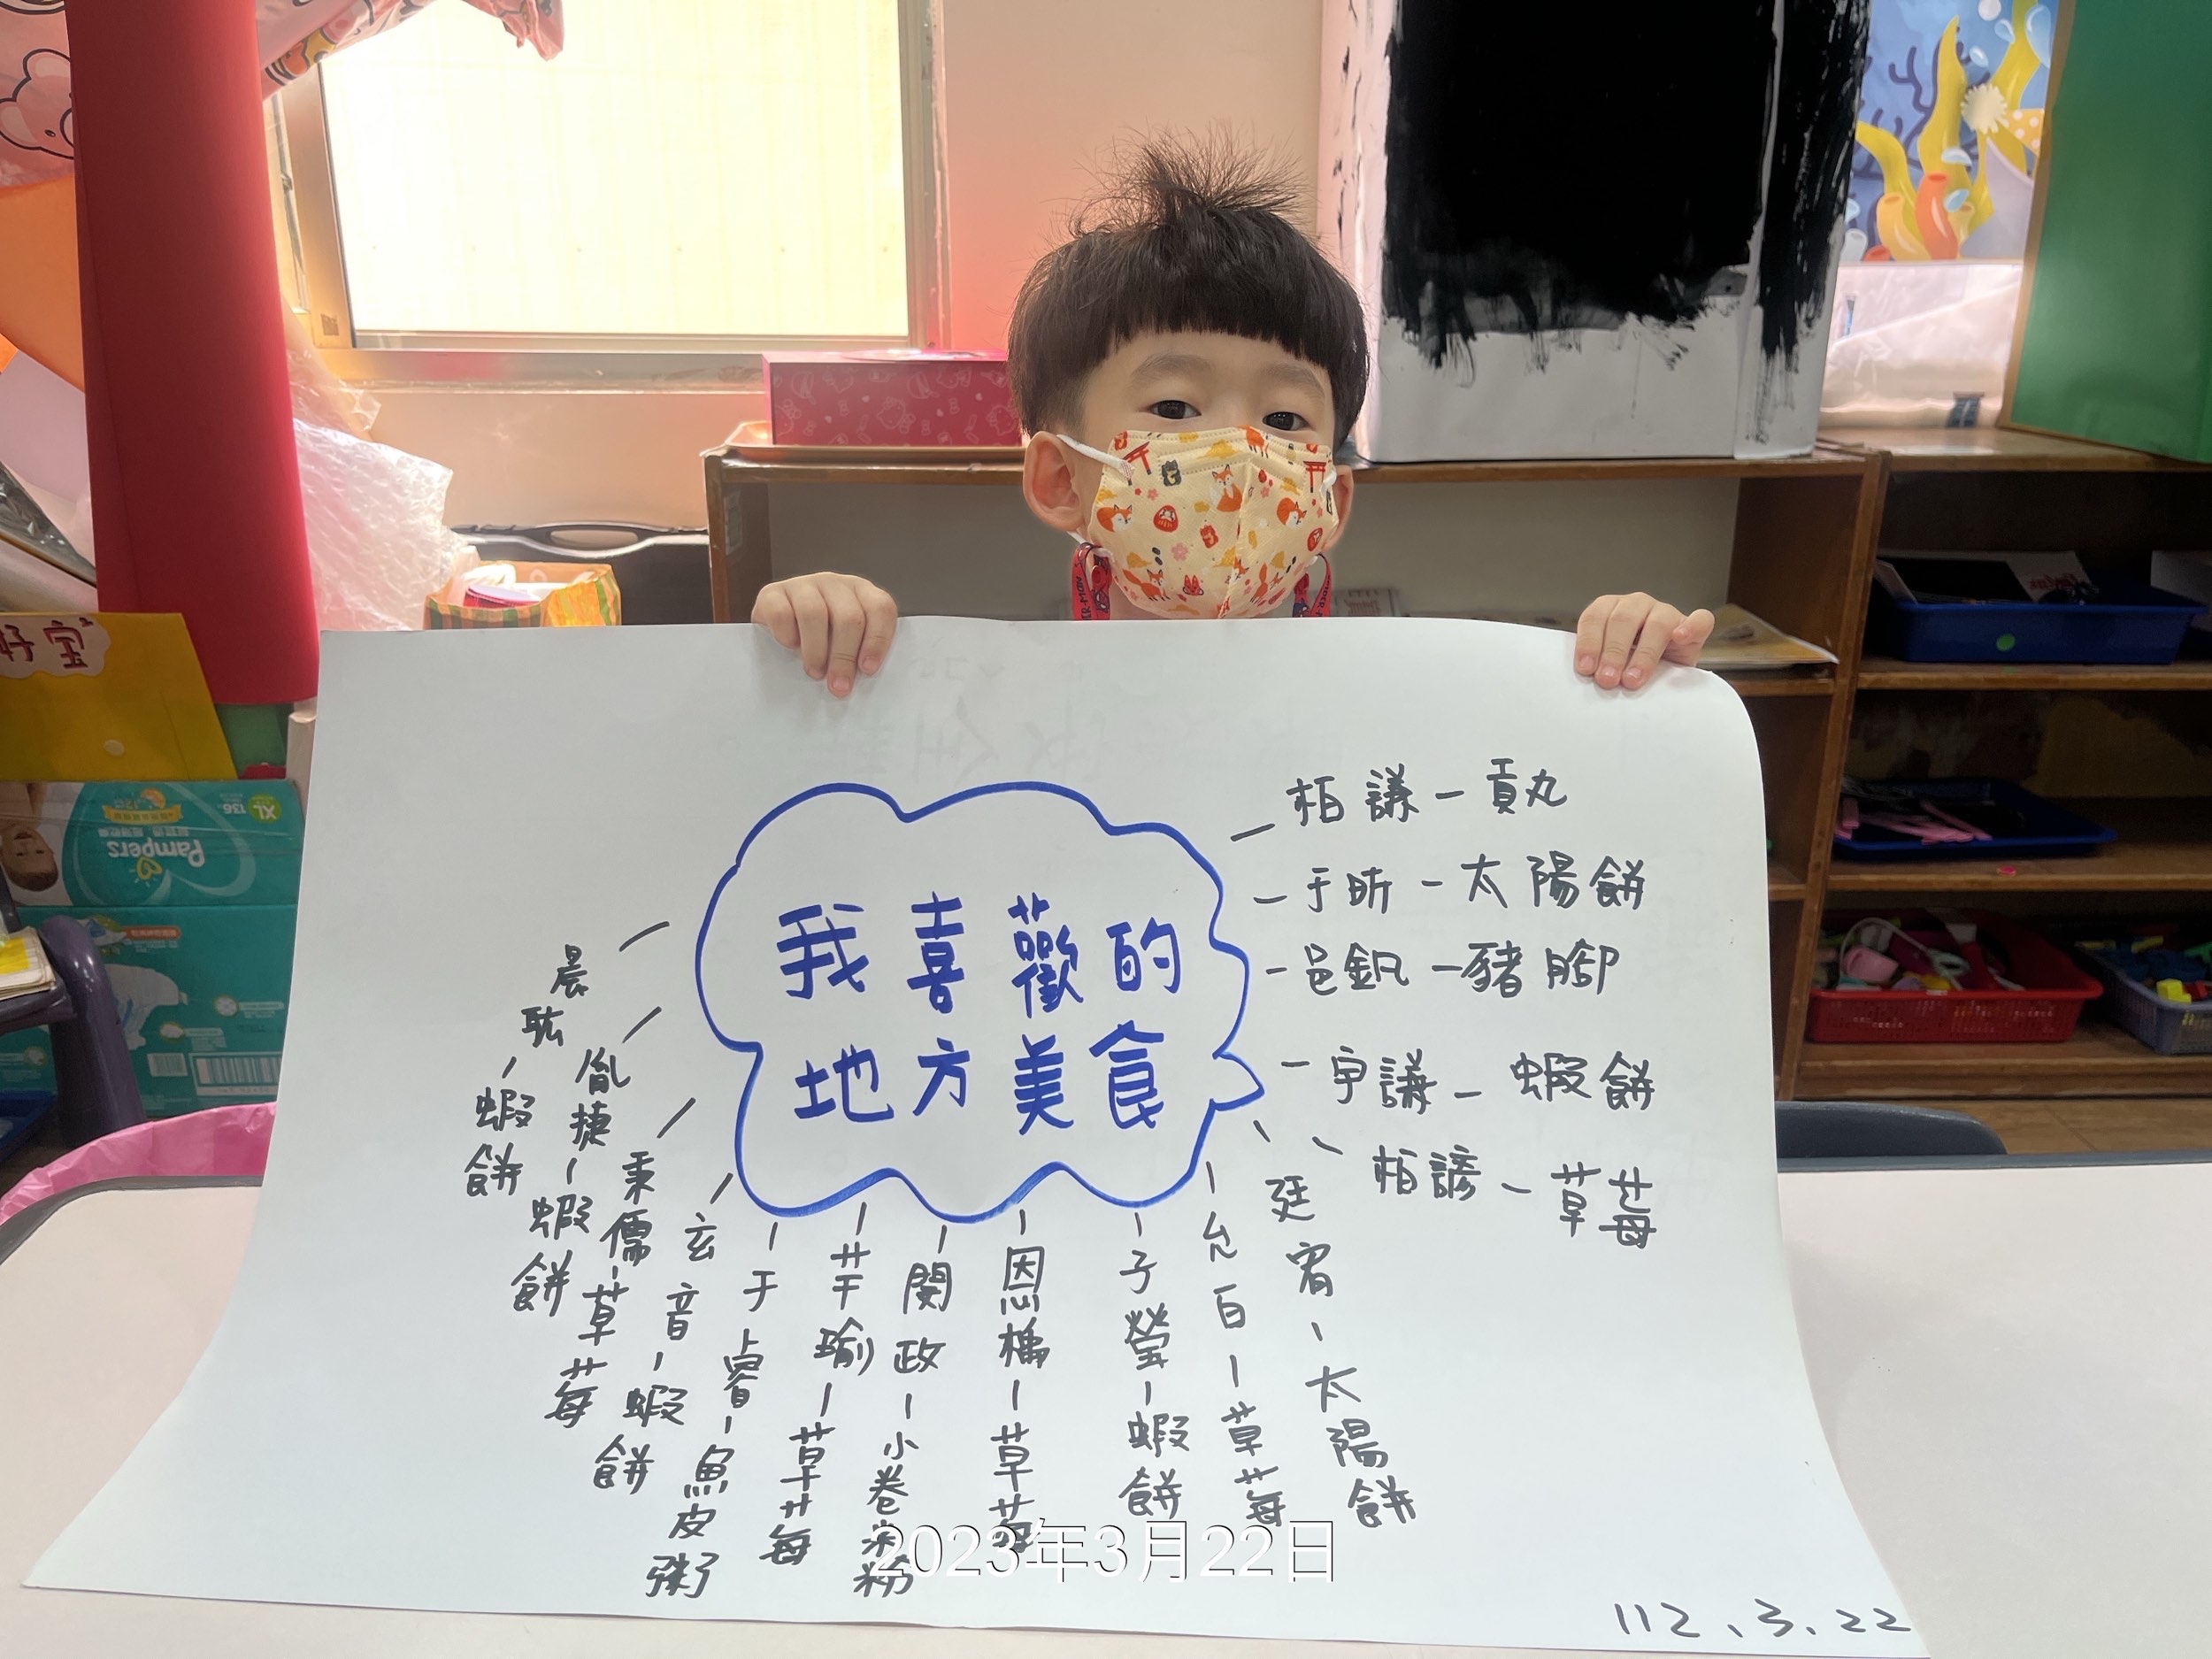 我喜歡的
地方美食
柏謙－貢丸
于昕－太陽餅
邑釩－豬腳
宇謙－蝦餅
柏諺－草莓
廷宥－太陽餅
允百－草莓
子螢－蝦餅
恩橋－草莓
閔政－小卷米粉
芊瑜－草莓
于睿－魚皮粥
玄音－蝦餅
秉儒－草莓
胤捷－蝦餅
晨耘－蝦餅
112.3.22
2023年3月22日
好宝
Pampers
XL
136